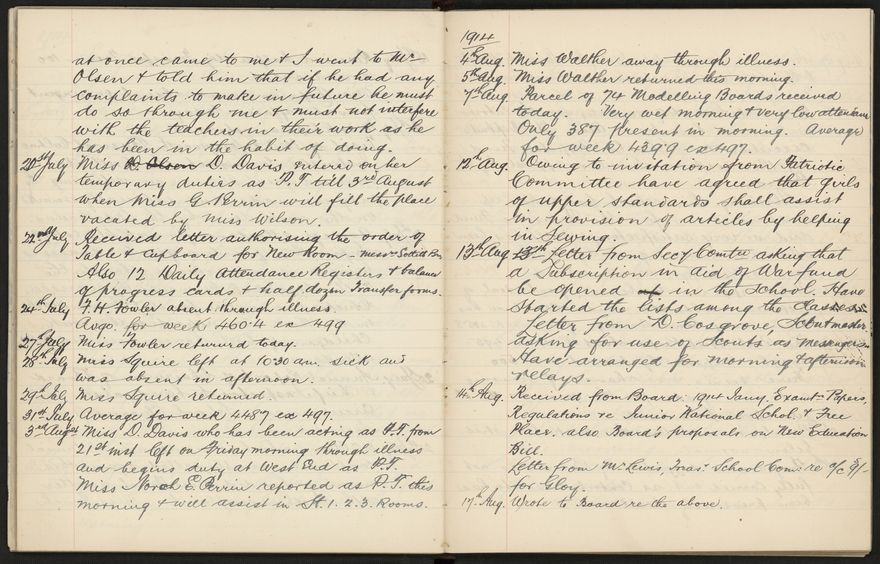 at once came to me & I went to Mr
Olsen & told him that if he had any
complaints to make in future he must
do so through me & must not interfere
with the teachers in their work as he
has been in the habit of doing.
20th July Miss Olsen D. Davis enterid on her
temporary duties as P.T till 3rd August
when Miss G Perrin will fill the place
vacated by Miss Wilson.
22nd July Received letter authorising the order of
Table & Cupboard for New Room - Messrs
Also 12 Daily Attendance Registers & balance
of progress cards & half dozen Transfer forms.
24th July F. H. Fowler absent through illness
Avge. for week 460.4 ex 499
27th July Miss Fowler returned today.
28th July Miss Squire left at 10.30 am. sick and
was absent in afternoon.
29th July Miss Squire returned
31st July Average for week 448.7 ex 497.
3rd August Miss D. Davis who has been acting as P.T. from
21st inst left on Friday morning through illness
and begins duty at West End as P.T.
Miss Norah E. Perrin reported as P.T. this
morning & will assist in St. 1. 2. 3. Rooms.
1914
4th Aug. Miss Walther away through illness.
5th Aug Miss Walther returned this morning.
7th Aug Parcel of 74 Modelling Boards received
today. Very wet morning & very low attendance
Only 387 present in morning. Average
for week 439.9 ex 497.
12th Aug. Owing to invitation from Patriotic
Committee have agreed that girls
of upper standards shall assist
in provision of articles by helping
in Sewing.
13th Aug 13th Letter from Secy Comtee asking that
a Subscription in aid of War fund
be opened in the School. Have
started the lists among the classes.
Letter from D. Cosgrove, Scoutmaster
asking for use of Scouts as messengers
Have arranged for morning & afternoon
relays.
14th Aug. Received from Board. 1914 Jany. Examtn Papers,
Regulations re Junior National Schol. & Free
Place. also Board's proposals on New Education
Bill.
Letter from Mr Lewis, Treas. School Com. re a/c 9/-
for Gloy.
17th Aug. Wrote to Board re the above.